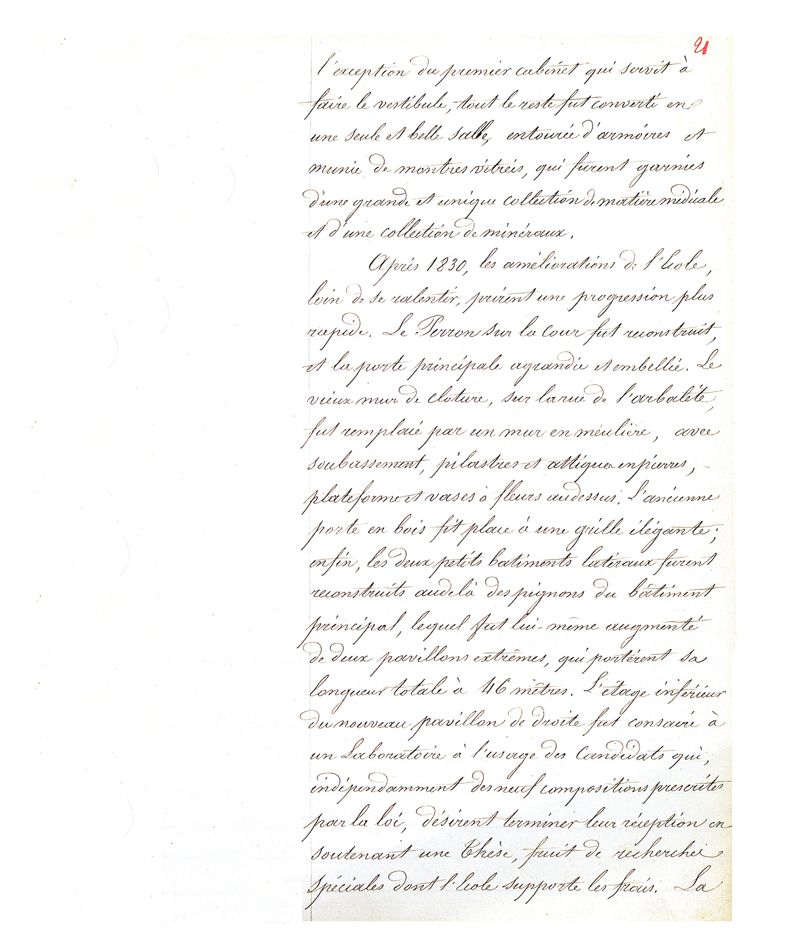 21
l'exception du premier cabinet qui servit à
faire le vestibule, tout le reste fut converti en
une seule et belle salle, entourée d'armoires et
munie de montres vitrées, qui furent garnies
d'une grande et unique collection de matière médicale
et d'une collection de minéraux.
Après 1830, les améliorations de l'Ecole,
loin de se ralentir, prirent une progression plus
rapide. Le Perron sur la cour fut reconstruit,
et la porte principale agrandie et embellie. Le
vieux mur de cloture, sur la rue de l'arbalète,
fut remplacé par un mur en meulière, avec
soubassement, pilastres et attique en pierres,
plateforme et vases à fleurs audessus. L'ancienne
porte en bois fit place à une grille élégante;
enfin, les deux petits batiments latéraux furent
reconstruits audelà des pignons du bâtiment
principal, lequel fut lui-même augmenté
de deux pavillons extrêmes, qui portèrent sa
longueur totale à 46 mètres. L'étage inférieur
du nouveau pavillon de droite fut consacré à
un Laboratoire à l'usage des Candidats qui,
indépendamment des neuf compositions prescrites
par la loi, désirent terminer leur réception en
soutenant une Thèse, fruit de recherches
spéciales dont l'Ecole supporte les frais. La